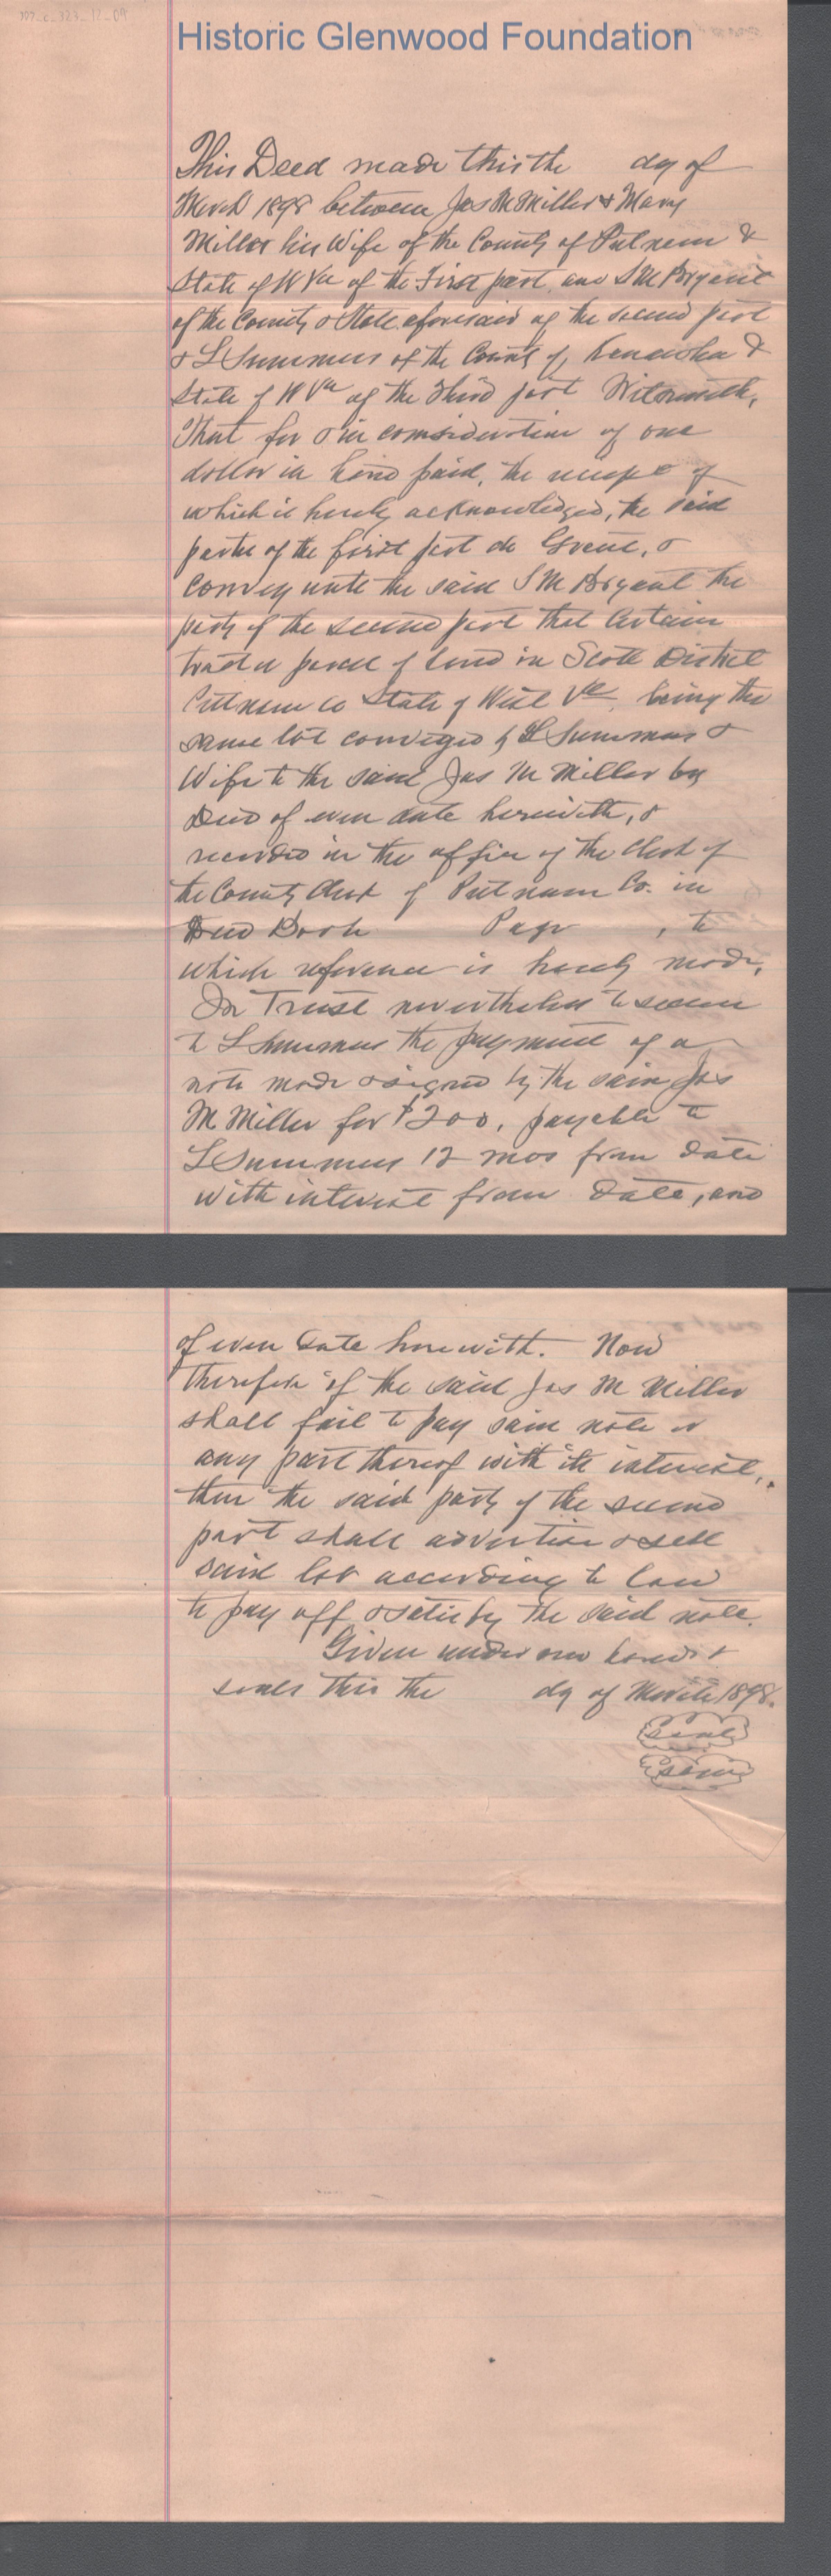 Historic Glenwood Foundation
This Deed made this the day of
March 1898 between Jas M Miller & Mary
Miller his Wife of the County of Putnam &
State of W Va of the First part, and S M Bryant
of the County & State aforesaid of the second part
& L Summers of the County of Kanawha &
State of W Va of the Third part Witnesseth,
That for & in consideration of one
dollar in hand paid, the receipt of
which is hereby acknowledged, the said
parties of the first part do Grant, &
convey unto the said S M Bryant the
party of the second part that Certain
tract or parcel of land in Scott District
Putnam Co State of West Va, being the
same lot conveyed by L Summers &
Wife to the said Jas M Miller by
Deed of even date herewith, &
recorded in the office of the Clerk of
the County Court of Putnam Co. in
Deed Book Page , to
which reference is hereby made,
In Trust nevertheless to secure
to L Summers the payment of a
note made & signed by the said Jas
M Miller for $200, payable to
L Summers 12 mos from date
with interest from date, and
of even date herewith. Now
therefore if the said Jas M Miller
shall fail to pay said note or
any part thereof with its interest,
then the said party of the second
part shall advertise & sell
said lot according to law
to pay off & satisfy the said note.
Given under our hands &
seals this the day of March 1898.
Seal
Seal